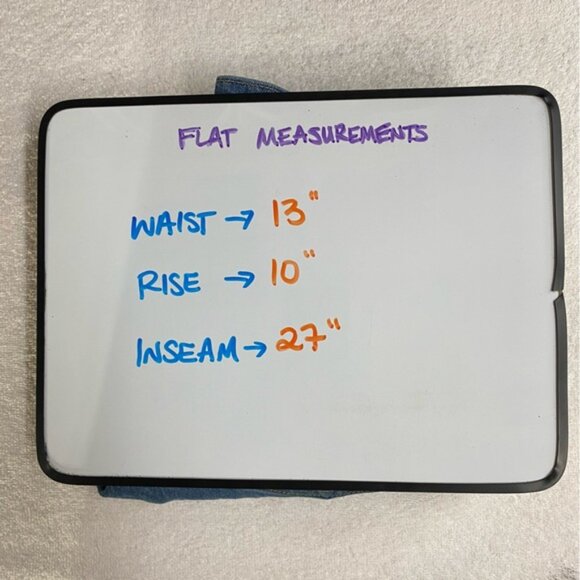 FLAT MEASUREMENTS
WAIST → 13"
RISE → 10"
INSEAM → 27"